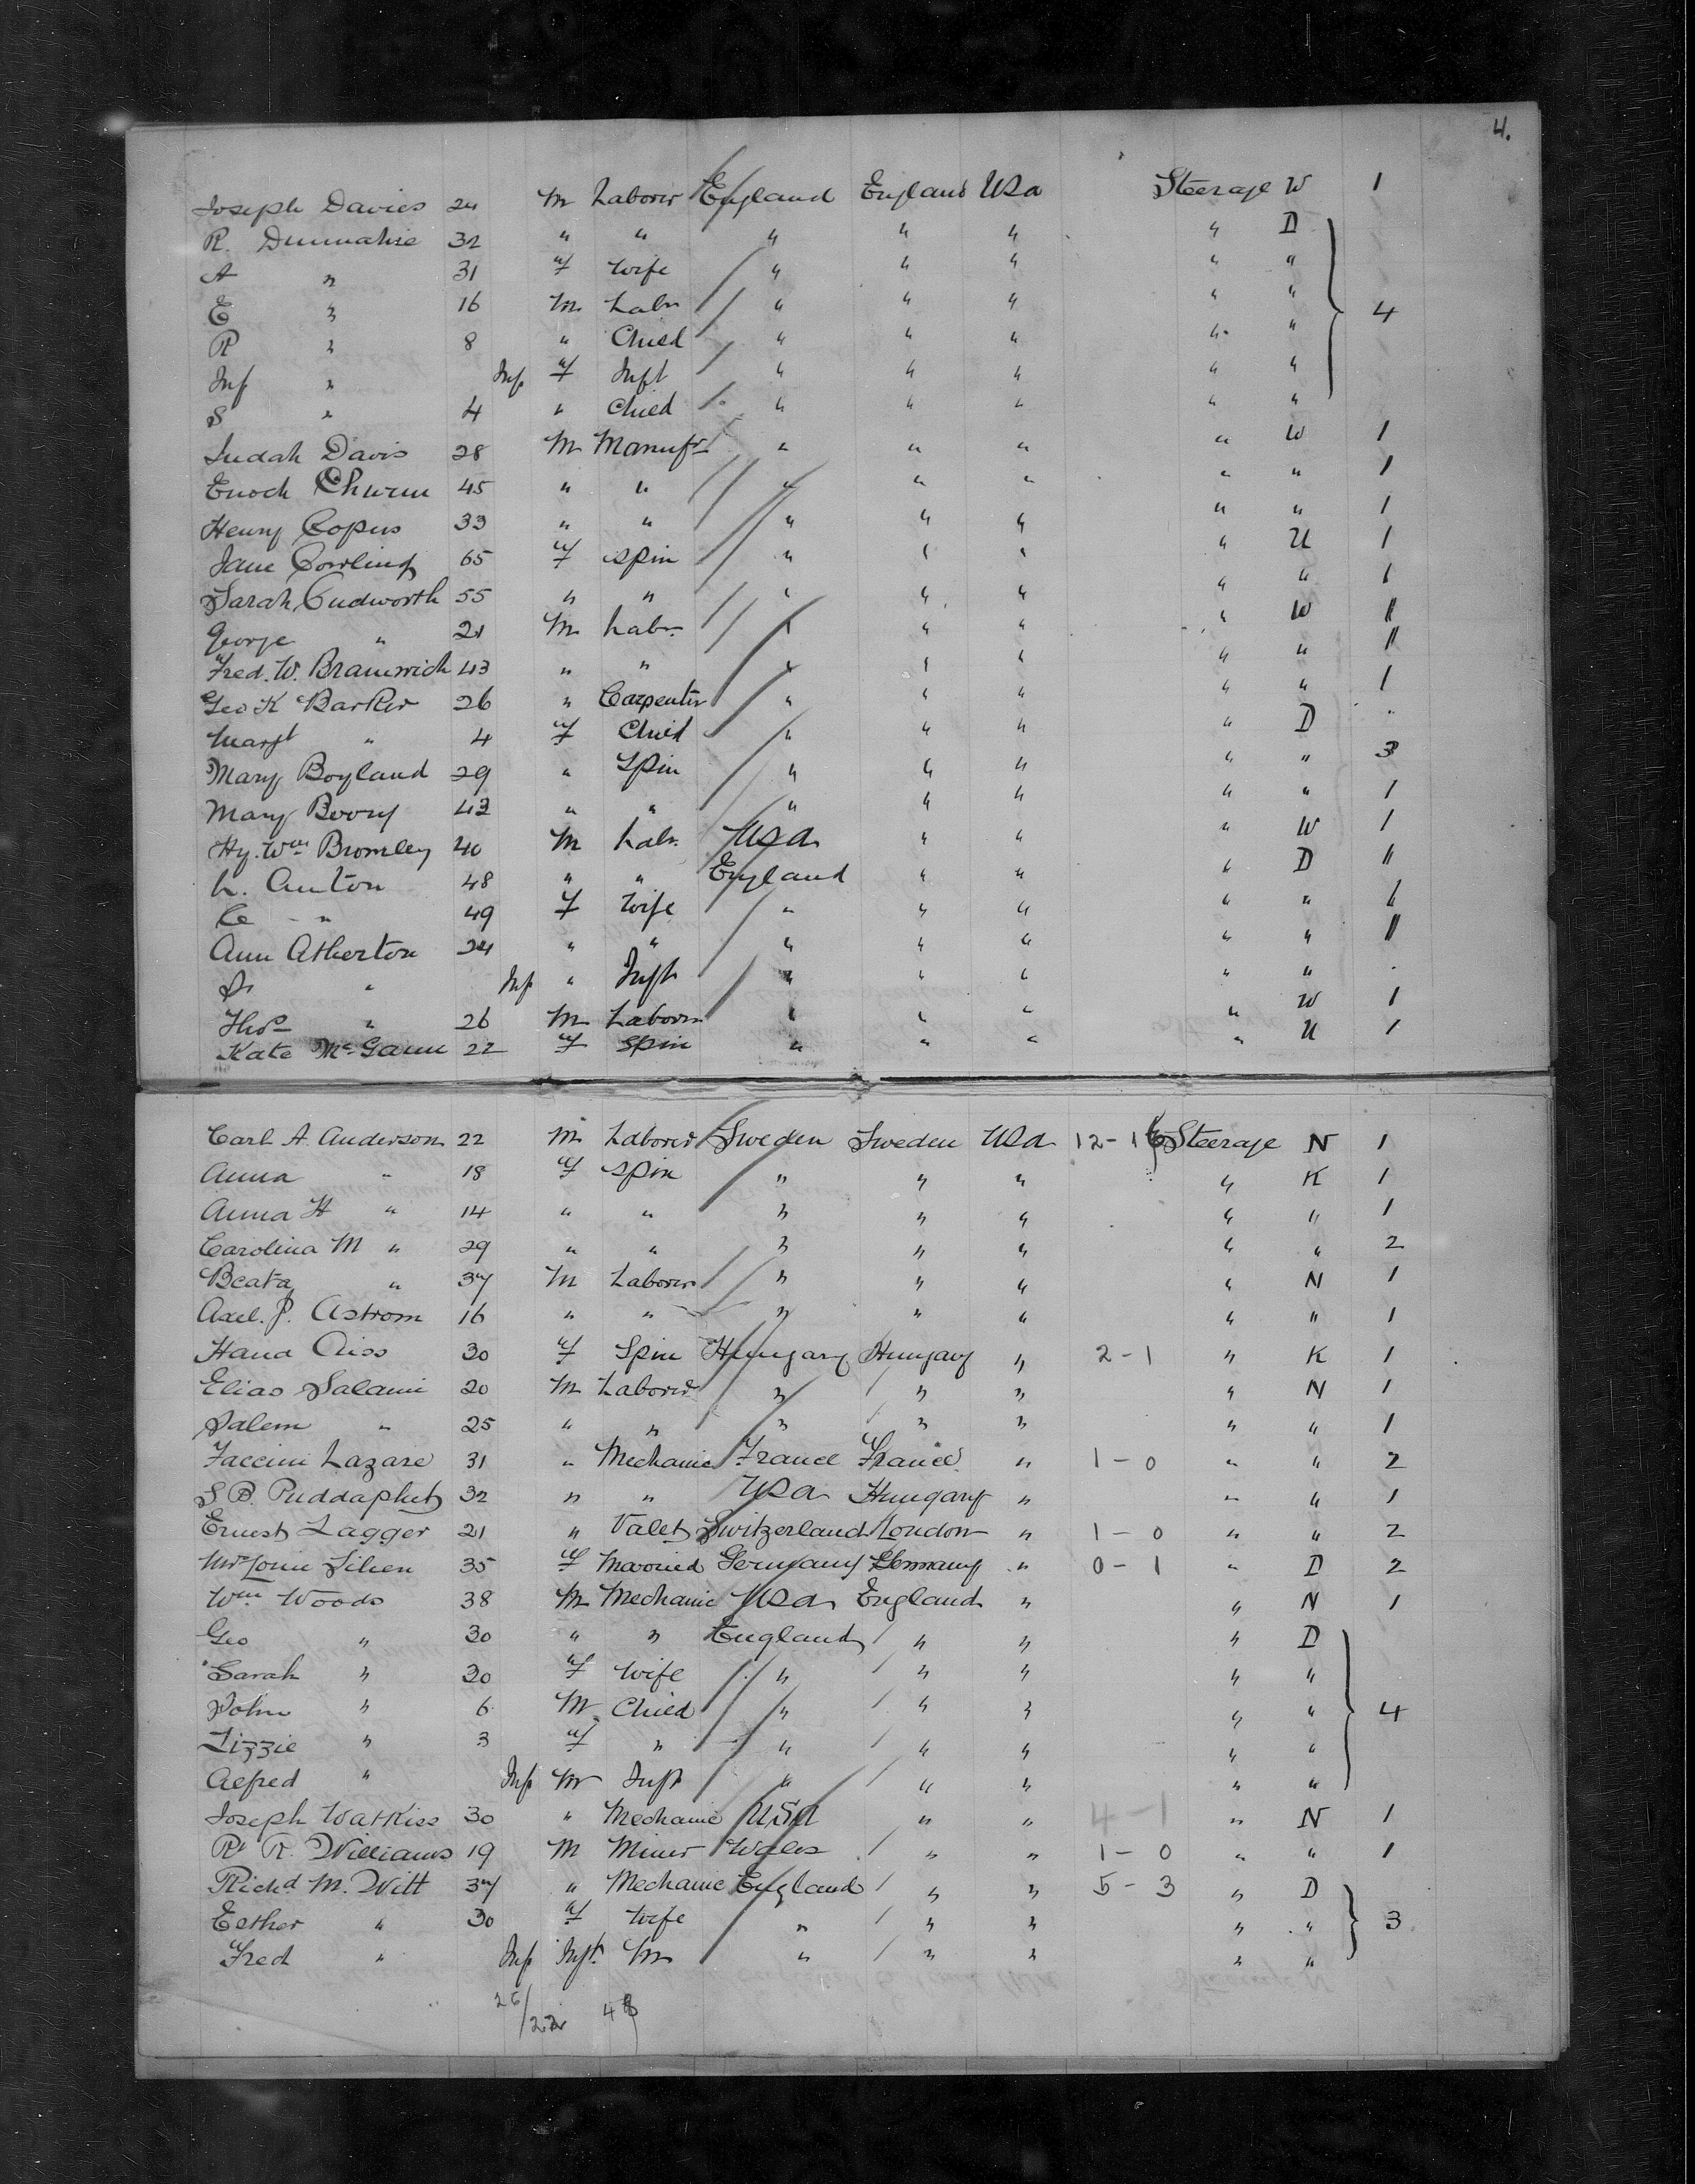 4.
Joseph Davies 24 M Laborer England England USa Steerage W 1
R. 32 " " " " " " D
A " 31 f Wife " " " " "
E " 16 M Labr " " " " " 4
R " 8 " Child " " " " "
Inf " Inf f Inft " " " " "
S " 4 " Child " " " " "
Judah Davis 28 M Manufr " " " " W 1
Enoch 45 " " " " " " " 1
Henry Copus 33 " " " " " " " 1
Jane Cowling 65 f Spin " " " " U 1
Sarah Cudworth 55 " " " " " " " 1
George " 21 M Labr " " " " W 11
Fred. W. Bramwich 43 " " " " " " " 11
Geo K Barker 26 " Carpenter " " " " " 1
Margt " 4 f Child " " " " D "
Mary Boyland 29 " Spin " " " " " 3
Mary 43 " " " " " " " 1
Hy. Wm Bromley 40 M Labr. USa " " " W 1
L. Auton 48 " " England " " " D 11
" 49 f Wife " " " " " 1
Ann Atherton 24 " " " " " " " 11
" Inf " Inft " " " " "
Thos " 26 M Laborer " " " " W 1
Kate McGann 22 f Spin " " " " U 1
Carl A. Anderson 22 M Laborer Sweden Sweden USa 12-16 Steerage N 1
Anna " 18 f Spin " " " " K 1
Anna H " 14 " " " " " " " 1
Carolina M " 29 " " " " " " " 2
Beata " 37 M Laborer " " " " N 1
Axel. P. Astrom 16 " " " " " " " 1
Hana Aiss 30 f Spin Hungary Hungary " 2-1 " K 1
Elias Salami 20 M Laborer " " " " N 1
Salem " 25 " " " " " " " 1
Faccini Lazare 31 " Mechanic France France " 1-0 " " 2
S B. Puddaphet 32 " " USa Hungary " " " 1
Ernest Lagger 21 " Valet Switzerland London " 1-0 " " 2
Mrs 35 f Married Germany Germany " 0-1 " D 2
Wm Woods 38 M Mechanic USa England " " N 1
Geo " 30 " " England " " " D
Sarah " 30 f Wife " " " " "
John " 6 M Child " " " " " 4
Lizzie " 3 f " " " " " "
Alfred " Inf M Inft " " " " "
Joseph Watkiss 30 " Mechanic USA " " 4-1 " N 1
Rt R. Williams 19 M Miner Wales " " 1-0 " " 1
Richd M. Witt 37 " Mechanic England " " 5-3 " D
Esther " 30 f Wife " " " " " 3
Fred " Inf Inft M " " " " "
26/22 48